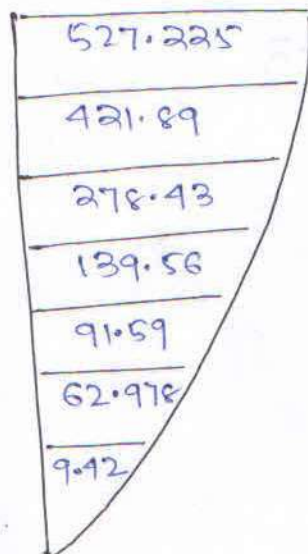 527.225
421.89
278.43
139.56
91.59
62.978
9.42